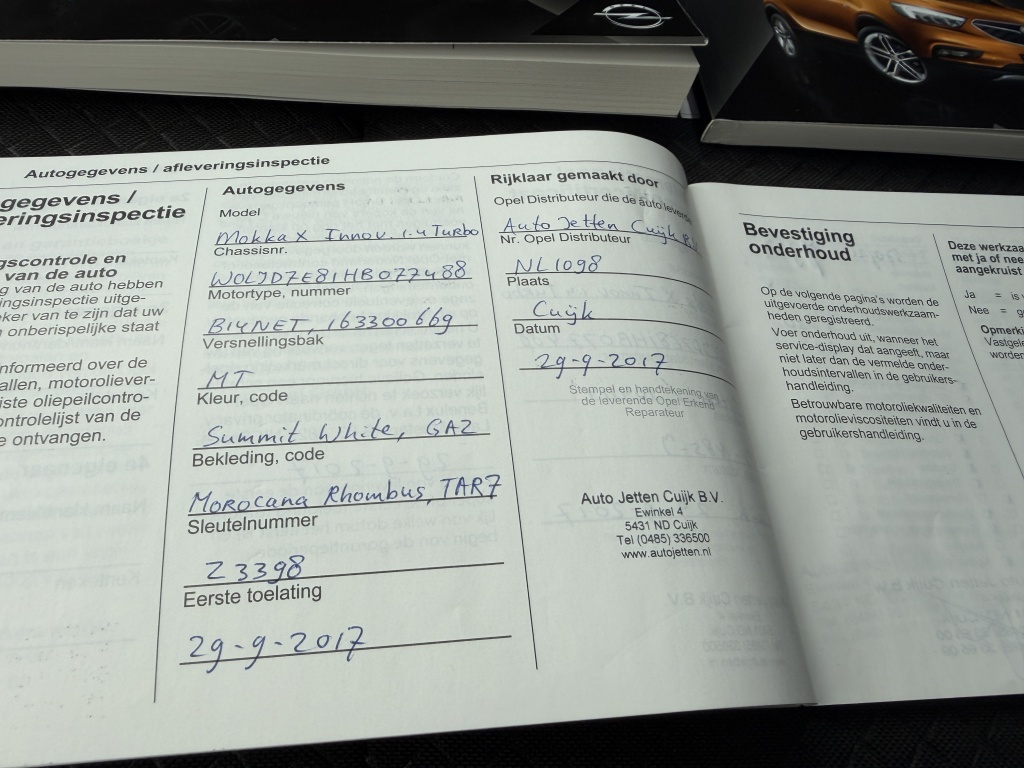 Autogegevens / afleveringsinspectie
gegevens /
eringsinspectie
gscontrole en
van de auto
g van de auto hebben
ingsinspectie uitge-
eker van te zijn dat uw
onberispelijke staat
nformeerd over de
allen, motoroliever-
iste oliepeilcontro-
ontrolelijst van de
e ontvangen.
Autogegevens
Model
Mokka X Innov. 1.4 Turbo
Chassisnr.
W0LJD7E81HB077488
Motortype, nummer
B14NET, 163300669
Versnellingsbak
MT
Kleur, code
Summit White, GAZ
Bekleding, code
Morocana Rhombus, TAR7
Sleutelnummer
Z3398
Eerste toelating
29-9-2017
Rijklaar gemaakt door
Opel Distributeur die de auto levere
Auto Jetten Cuijk B.V.
Nr. Opel Distributeur
NL1098
Plaats
Cuijk
Datum
29-9-2017
Stempel en handtekening van
de leverende Opel Erkend
Reparateur
Auto Jetten Cuijk B.V.
Ewinkel 4
5431 ND Cuijk
Tel (0485) 336500
www.autojetten.nl
Bevestiging
onderhoud
Op de volgende pagina's worden de
uitgevoerde onderhoudswerkzaam-
heden geregistreerd.
Voer onderhoud uit, wanneer het
service-display dat aangeeft, maar
niet later dan de vermelde onder-
houdsintervallen in de gebruikers-
handleiding.
Betrouwbare motoroliekwaliteiten en
motorolieviscositeiten vindt u in de
gebruikershandleiding.
Deze werkzaa
met ja of nee
aangekruist
Ja = is
Nee = g
Opmerki
Vastgele
worden